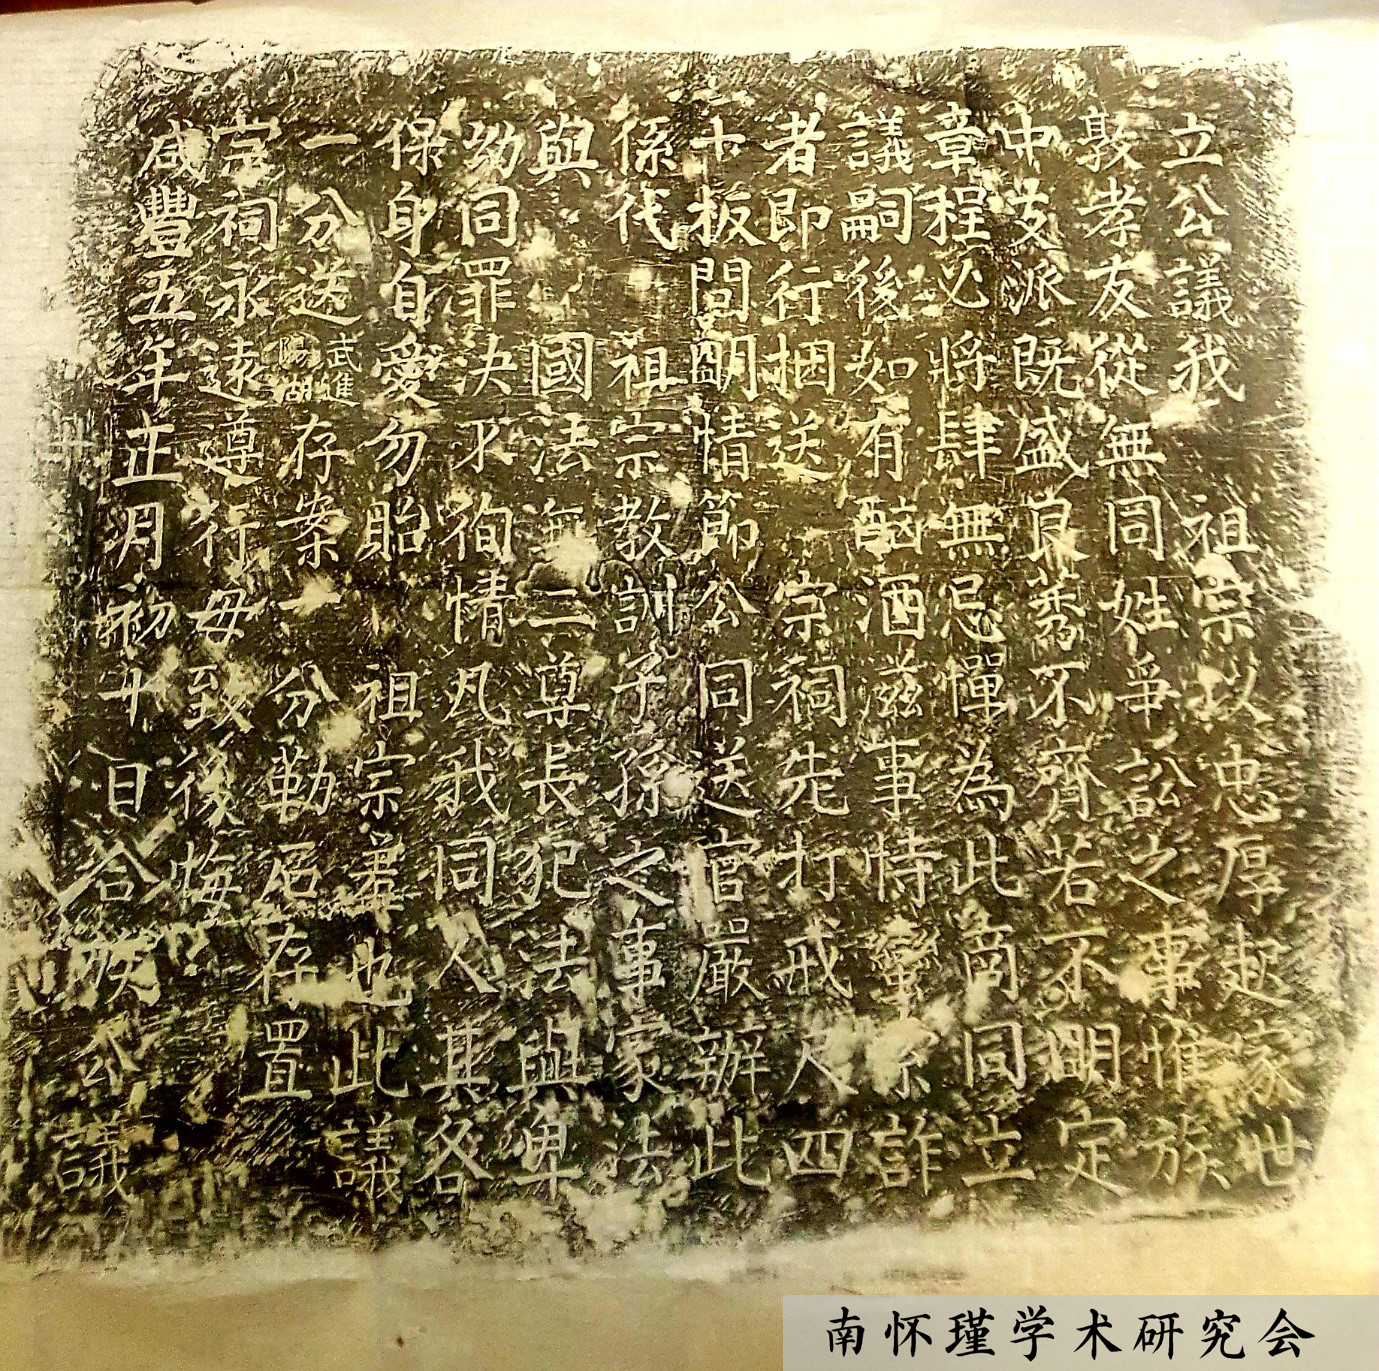 立公議我 祖宗以忠厚起家世
敦孝友從無同姓爭訟之事惟族
中支派既盛良莠不齊若不明定
章程必將肆無忌憚為此啇同立
議嗣後如有酗酒滋事恃蠻索詐
者即行捆送 宗祠先打戒尺四
十板問明情節公同送官嚴辦此
係代 祖宗教訓子孫之事家法
與 國法無二尊長犯法與卑
幼同罪決不徇情凡我同人其各
保身自愛勿貽 祖宗羞也此議
一分送武進陽湖存案一分勒石存置
宗祠永遠遵行毋致後悔
咸豐五年正月初十日合族公議
南怀瑾学术研究会